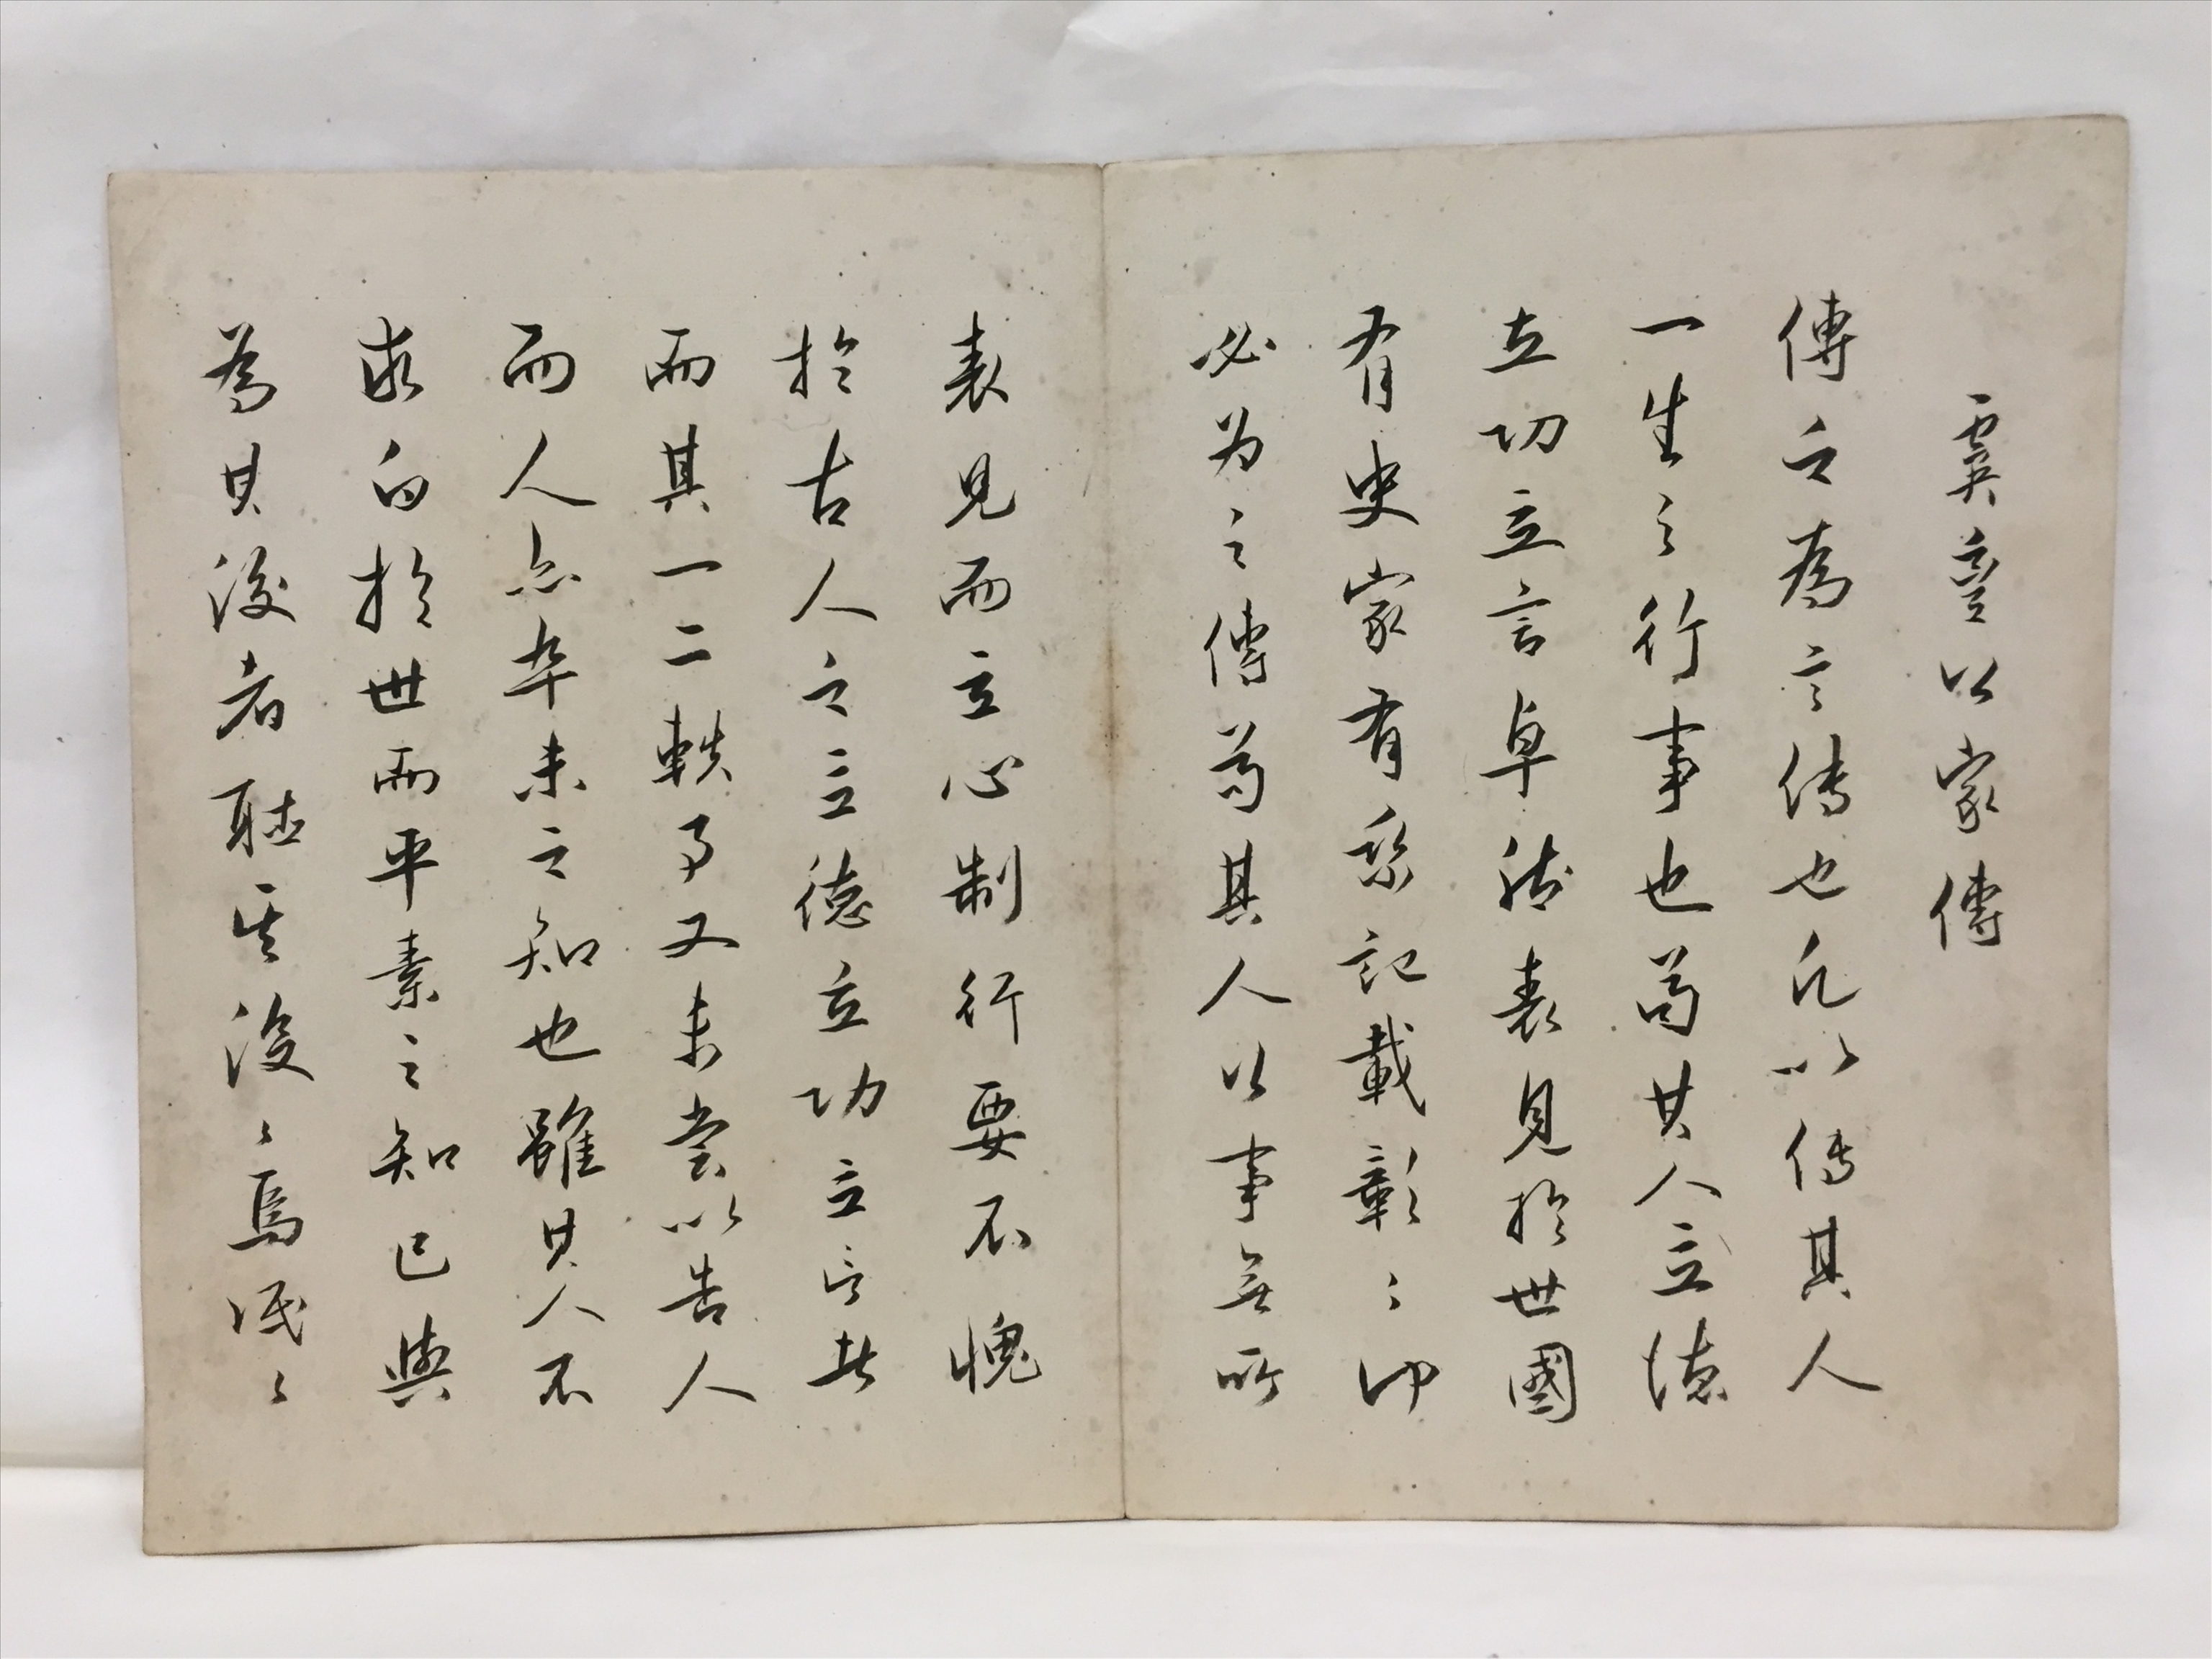 虞臺公家傳
傳之為言傳也凡以傳其人
一生之行事也苟其人立德
立功立言卓然表見於世國
有史家有乘記載彰〻仰
必为之傳苟其人以事無所
表見而立心制行要不愧
於古人之立德立功立言者
而其一二軼事又未嘗以告人
而人亦卒未之知也雖其人不
求白於世而平素之知己與
為其後者聽其後〻焉泯〻